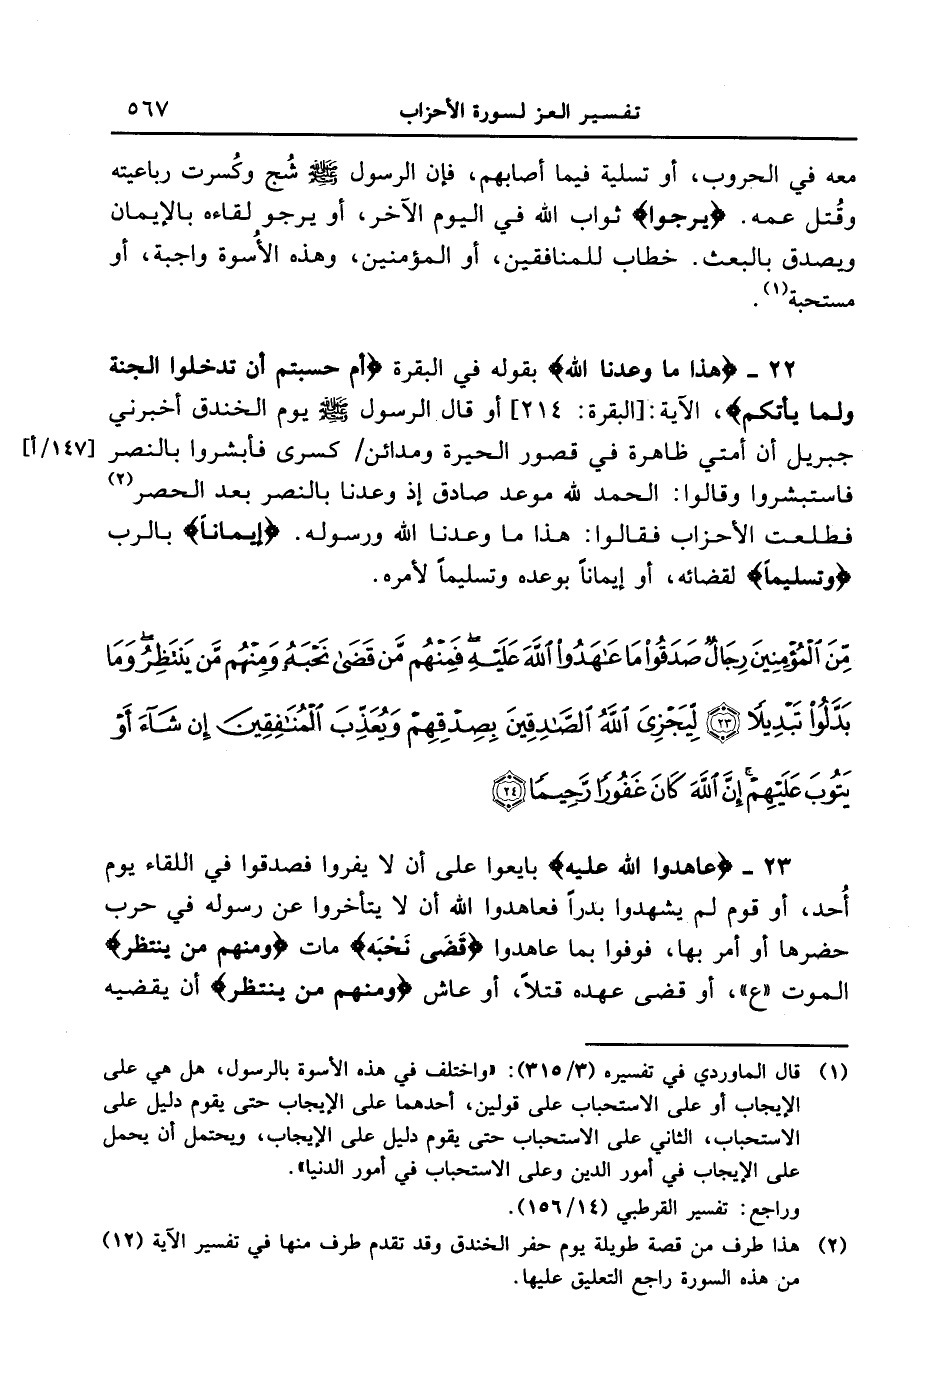 تفسير العز لسورة الأحزاب ٥٦٧
معه في الحروب، أو تسلية فيما أصابهم، فإن الرسول ﷺ شُج وكُسرت رباعيته
وقُتل عمه. ﴿يرجوا﴾ ثواب الله في اليوم الآخر، أو يرجو لقاءه بالإيمان
ويصدق بالبعث. خطاب للمنافقين، أو المؤمنين، وهذه الأُسوة واجبة، أو
مستحبة(١).
٢٢ ـ ﴿هذا ما وعدنا الله﴾ بقوله في البقرة ﴿أم حسبتم أن تدخلوا الجنة
ولما يأتكم﴾، الآية:[البقرة: ٢١٤] أو قال الرسول ﷺ يوم الخندق أخبرني
جبريل أن أمتي ظاهرة في قصور الحيرة ومدائن/ كسرى فأبشروا بالنصر [١٤٧/أ]
فاستبشروا وقالوا: الحمد لله موعد صادق إذ وعدنا بالنصر بعد الحصر(٢)
فطلعت الأحزاب فقالوا: هذا ما وعدنا الله ورسوله. ﴿إيماناً﴾ بالرب
﴿وتسليماً﴾ لقضائه، أو إيماناً بوعده وتسليماً لأمره.
مِّنَ ٱلْمُؤْمِنِينَ رِجَالٌ صَدَقُوا۟ مَا عَٰهَدُوا۟ ٱللَّهَ عَلَيْهِ ۖ فَمِنْهُم مَّن قَضَىٰ نَحْبَهُۥ وَمِنْهُم مَّن يَنتَظِرُ ۖ وَمَا
بَدَّلُوا۟ تَبْدِيلًا ﴿٢٣﴾ لِّيَجْزِىَ ٱللَّهُ ٱلصَّٰدِقِينَ بِصِدْقِهِمْ وَيُعَذِّبَ ٱلْمُنَٰفِقِينَ إِن شَآءَ أَوْ
يَتُوبَ عَلَيْهِمْ ۚ إِنَّ ٱللَّهَ كَانَ غَفُورًا رَّحِيمًا ﴿٢٤﴾
٢٣ ـ ﴿عاهدوا الله عليه﴾ بايعوا على أن لا يفروا فصدقوا في اللقاء يوم
أُحد، أو قوم لم يشهدوا بدراً فعاهدوا الله أن لا يتأخروا عن رسوله في حرب
حضرها أو أمر بها، فوفوا بما عاهدوا ﴿قَضَى نَحْبَه﴾ مات ﴿ومنهم من ينتظر﴾
الموت «ع»، أو قضى عهده قتلاً، أو عاش ﴿ومنهم من ينتظر﴾ أن يقضيه
(١) قال الماوردي في تفسيره (٣/٣١٥): «واختلف في هذه الأسوة بالرسول، هل هي على
الإيجاب أو على الاستحباب على قولين، أحدهما على الإيجاب حتى يقوم دليل على
الاستحباب، الثاني على الاستحباب حتى يقوم دليل على الإيجاب، ويحتمل أن يحمل
على الإيجاب في أمور الدين وعلى الاستحباب في أمور الدنيا».
وراجع: تفسير القرطبي (١٤/١٥٦).
(٢) هذا طرف من قصة طويلة يوم حفر الخندق وقد تقدم طرف منها في تفسير الآية (١٢)
من هذه السورة راجع التعليق عليها.